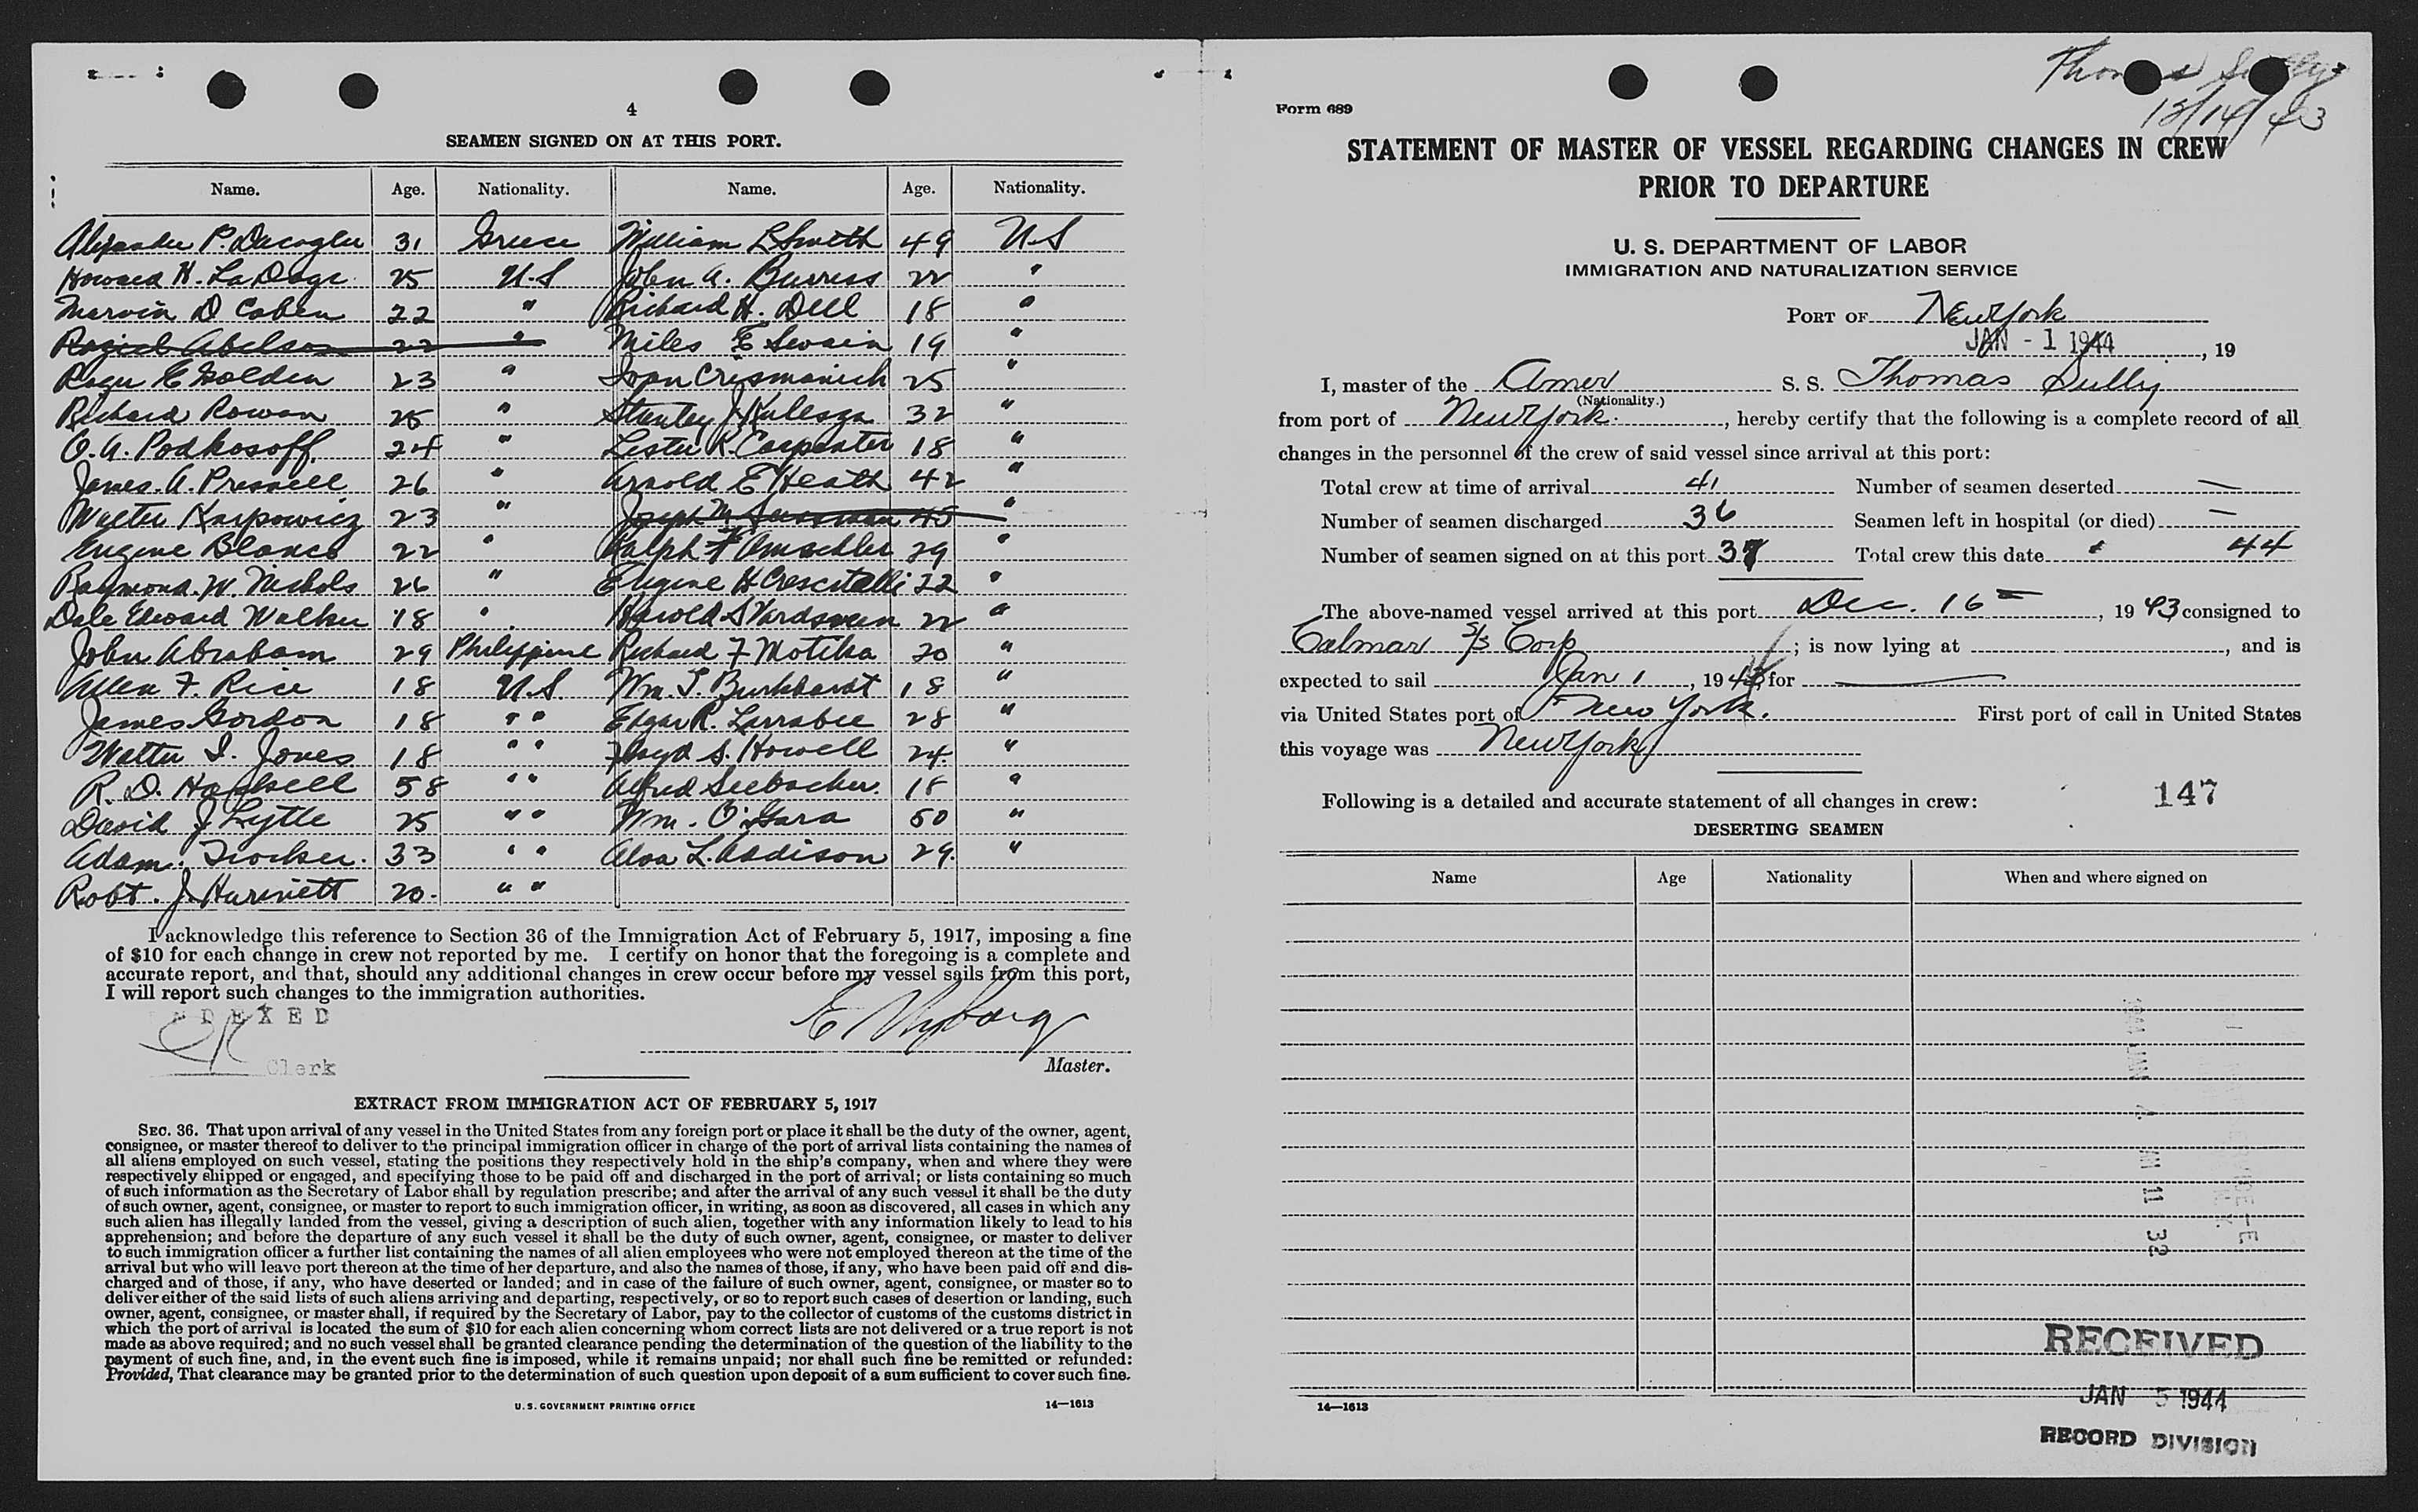 4
SEAMEN SIGNED ON AT THIS PORT.
Name. Age. Nationality. Name. Age. Nationality.
Alexander P. 31 Greece William L Smith 49 U S
Howard H. La 25 U.S John A. Burress 22 "
Marvin D Cohen 22 " Richard H. Dell 18 "
Abelson 22 " Miles E Swain 19 "
Roger E Golden 23 " Ivan Crismanich 25 "
Richard Rowan 25 " Stanley J Kulesza 32 "
O.A. Podkosoff 24 " Lester R. Carpenter 18 "
James. A. 26 " Arnold E Heath 42 "
Walter Karpowicz 23 " Joseph M 45 "
Eugene Blanco 22 " Ralph F 29 "
Raymond. W. Nichols 26 " Eugene H Crescitelli 22 "
Dale Edward Walker 18 " Harold S 22 "
John Abraham 29 Philippine Richard F Motika 20 "
Allen F. Rice 18 U.S. Wm. T. Burkhardt 18 "
James Gordon 18 " " Edgar R. Larrabee 28 "
Walter I. Jones 18 " " Floyd S. Howell 24. "
R. D. 58 " " Alfred Seebacher 18 "
David J Lytle 25 " " Wm. O'Gara 50 "
Adam. 33 " " Alva L. Addison 29. "
Robt. J. 20. " "
I acknowledge this reference to Section 36 of the Immigration Act of February 5, 1917, imposing a fine
of $10 for each change in crew not reported by me. I certify on honor that the foregoing is a complete and
accurate report, and that, should any additional changes in crew occur before my vessel sails from this port,
I will report such changes to the immigration authorities.
INDEXED
Clerk
E Nyborg
Master.
EXTRACT FROM IMMIGRATION ACT OF FEBRUARY 5, 1917
SEC. 36. That upon arrival of any vessel in the United States from any foreign port or place it shall be the duty of the owner, agent,
consignee, or master thereof to deliver to the principal immigration officer in charge of the port of arrival lists containing the names of
all aliens employed on such vessel, stating the positions they respectively hold in the ship's company, when and where they were
respectively shipped or engaged, and specifying those to be paid off and discharged in the port of arrival; or lists containing so much
of such information as the Secretary of Labor shall by regulation prescribe; and after the arrival of any such vessel it shall be the duty
of such owner, agent, consignee, or master to report to such immigration officer, in writing, as soon as discovered, all cases in which any
such alien has illegally landed from the vessel, giving a description of such alien, together with any information likely to lead to his
apprehension; and before the departure of any such vessel it shall be the duty of such owner, agent, consignee, or master to deliver
to such immigration officer a further list containing the names of all alien employees who were not employed thereon at the time of the
arrival but who will leave port thereon at the time of her departure, and also the names of those, if any, who have been paid off and dis-
charged and of those, if any, who have deserted or landed; and in case of the failure of such owner, agent, consignee, or master so to
deliver either of the said lists of such aliens arriving and departing, respectively, or so to report such cases of desertion or landing, such
owner, agent, consignee, or master shall, if required by the Secretary of Labor, pay to the collector of customs of the customs district in
which the port of arrival is located the sum of $10 for each alien concerning whom correct lists are not delivered or a true report is not
made as above required; and no such vessel shall be granted clearance pending the determination of the question of the liability to the
payment of such fine, and, in the event such fine is imposed, while it remains unpaid; nor shall such fine be remitted or refunded:
Provided, That clearance may be granted prior to the determination of such question upon deposit of a sum sufficient to cover such fine.
U. S. GOVERNMENT PRINTING OFFICE 14—1613
Thomas Sully
12/14/43
Form 689
STATEMENT OF MASTER OF VESSEL REGARDING CHANGES IN CREW
PRIOR TO DEPARTURE
U. S. DEPARTMENT OF LABOR
IMMIGRATION AND NATURALIZATION SERVICE
PORT OF New York
JAN - 1 1944, 19
I, master of the Amer S. S. Thomas Sully
(Nationality.)
from port of New York, hereby certify that the following is a complete record of all
changes in the personnel of the crew of said vessel since arrival at this port:
Total crew at time of arrival 41 Number of seamen deserted —
Number of seamen discharged 36 Seamen left in hospital (or died) —
Number of seamen signed on at this port 37 Total crew this date 44
The above-named vessel arrived at this port Dec. 16, 1943 consigned to
Calmar S/S Corp; is now lying at , and is
expected to sail Jan 1, 1944, for —
via United States port of New York. First port of call in United States
this voyage was New York
Following is a detailed and accurate statement of all changes in crew: 147
DESERTING SEAMEN
Name Age Nationality When and where signed on
1944 JAN 4 AM 11 32
RECEIVED
JAN 5 1944
RECORD DIVISION
14—1613